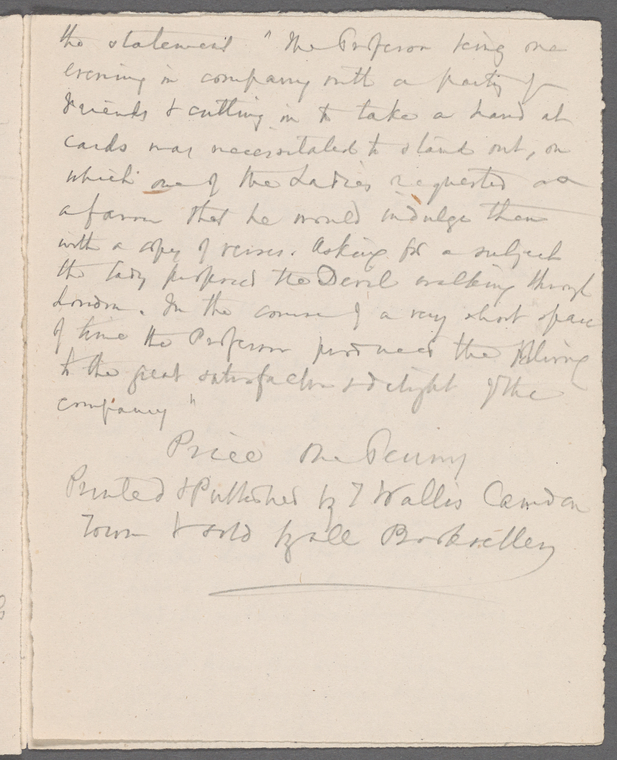 the statement "The Professor being one
evening in company with a party of
friends & cutting in to take a hand at
cards was necessitated to stand out, on
which one of the Ladies requested as
a favour that he would indulge them
with a copy of verses. Asking for a subject
the lady proposed the Devil walking through
London. In the course of a very short space
of time the Professor produced the following
to the great satisfaction & delight of the
company"
Price One Penny
Printed & Published by T Wallis Camden
Town & sold by all Booksellers